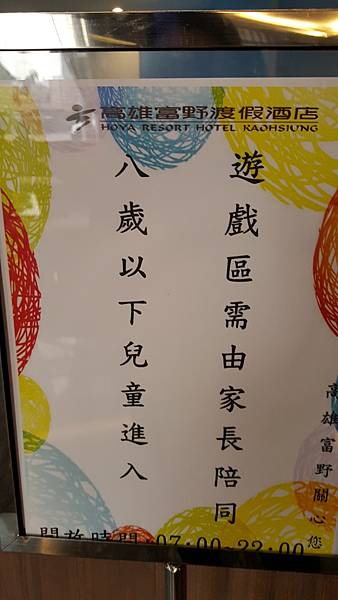 高雄富野渡假酒店
HOYA RESORT HOTEL KAOHSIUNG
遊戲區需由家長陪同
八歲以下兒童進入
高雄富野關心您
開放時間 07:00~22:00